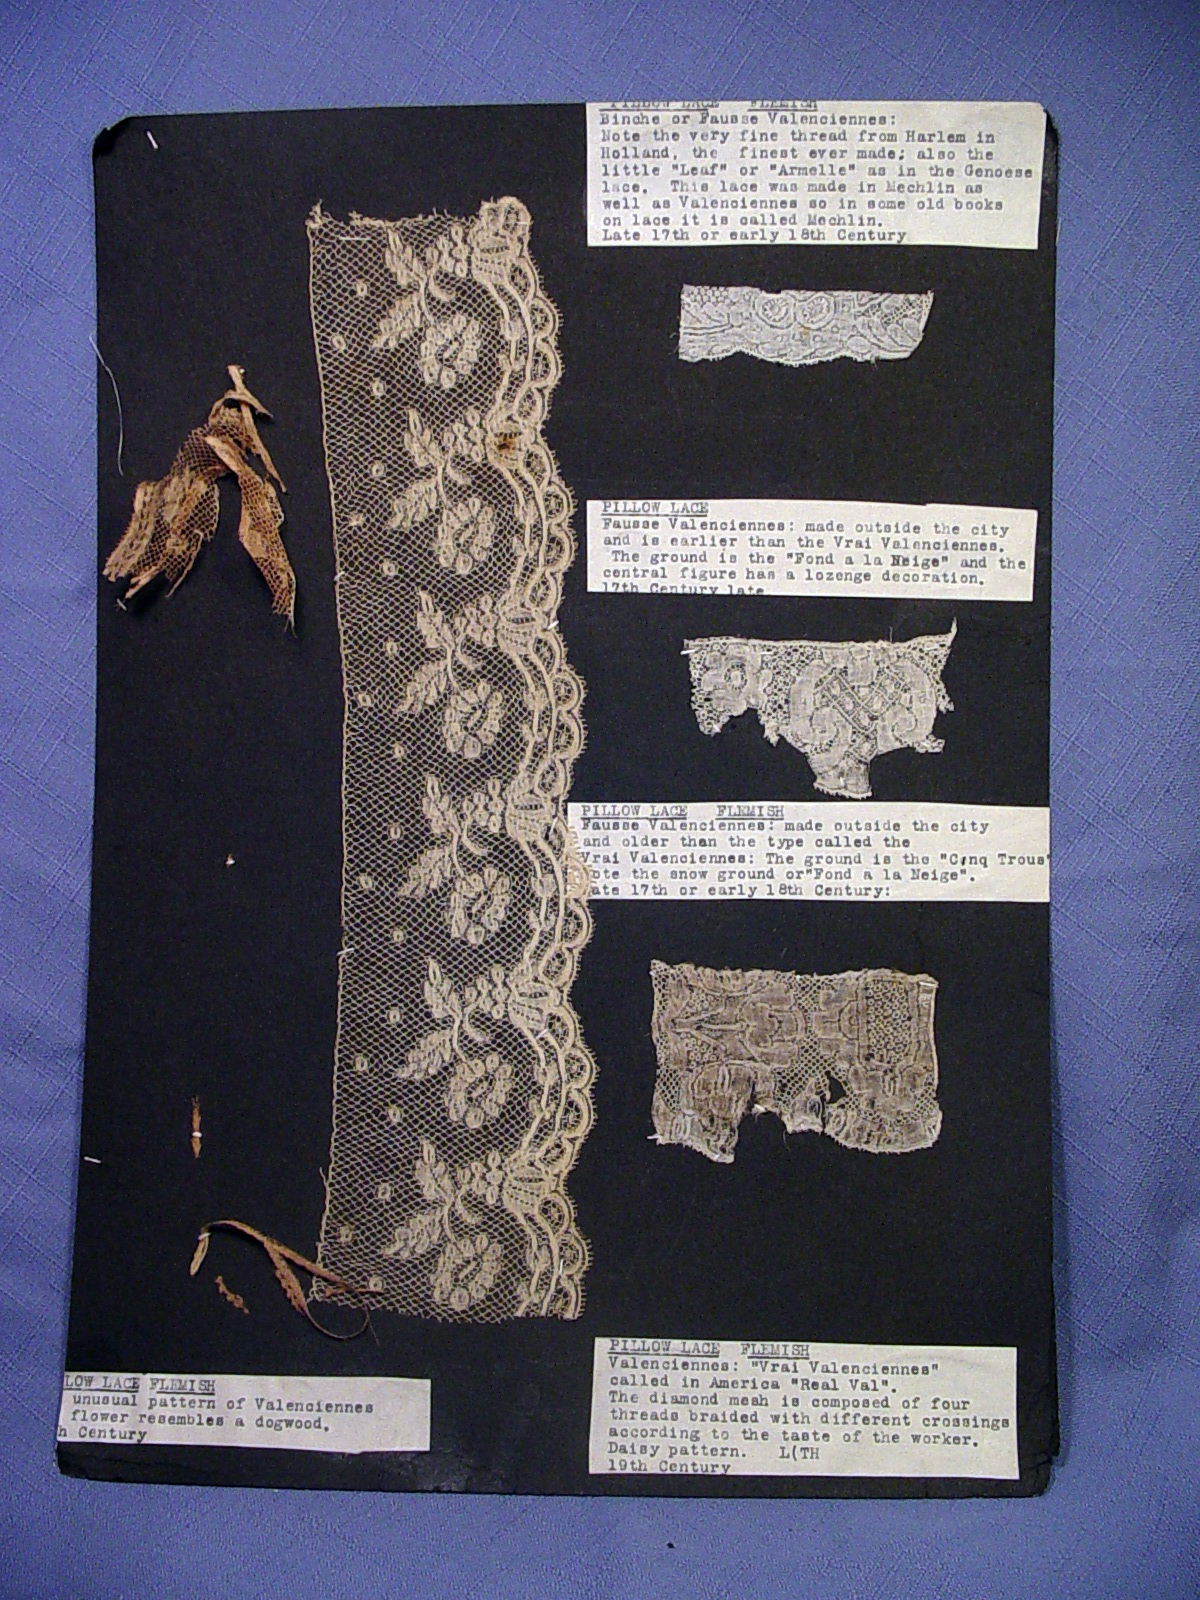 PILLOW LACE FLEMISH
Binche or Fausse Valenciennes:
Note the very fine thread from Harlem in
Holland, the finest ever made; also the
little "Leaf" or "Armelle" as in the Genoese
lace. This lace was made in Mechlin as
well as Valenciennes so in some old books
on lace it is called Mechlin.
Late 17th or early 18th Century
PILLOW LACE
Fausse Valenciennes: made outside the city
and is earlier than the Vrai Valenciennes.
The ground is the "Fond a la Neige" and the
central figure has a lozenge decoration.
17th Century late
PILLOW LACE FLEMISH
Fausse Valenciennes: made outside the city
and older than the type called the
Vrai Valenciennes: The ground is the "Cinq Trous"
ote the snow ground or"Fond a la Neige".
ate 17th or early 18th Century:
LOW LACE FLEMISH
unusual pattern of Valenciennes
flower resembles a dogwood.
h Century
PILLOW LACE FLEMISH
Valenciennes: "Vrai Valenciennes"
called in America "Real Val".
The diamond mesh is composed of four
threads braided with different crossings
according to the taste of the worker.
Daisy pattern. L(TH
19th Century